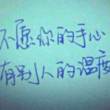 不愿你的手心
有别人的温度